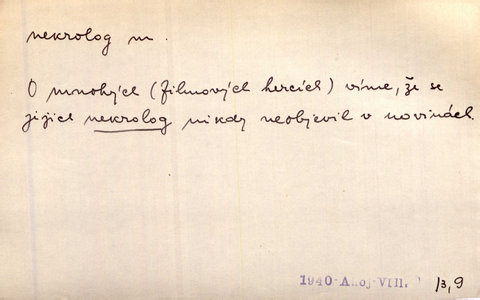 nekrolog m.
O mnohých (filmových hercích) víme, že se
jejich nekrolog nikdy neobjevil v novinách.
1940-Ahoj-VIII. 13,9